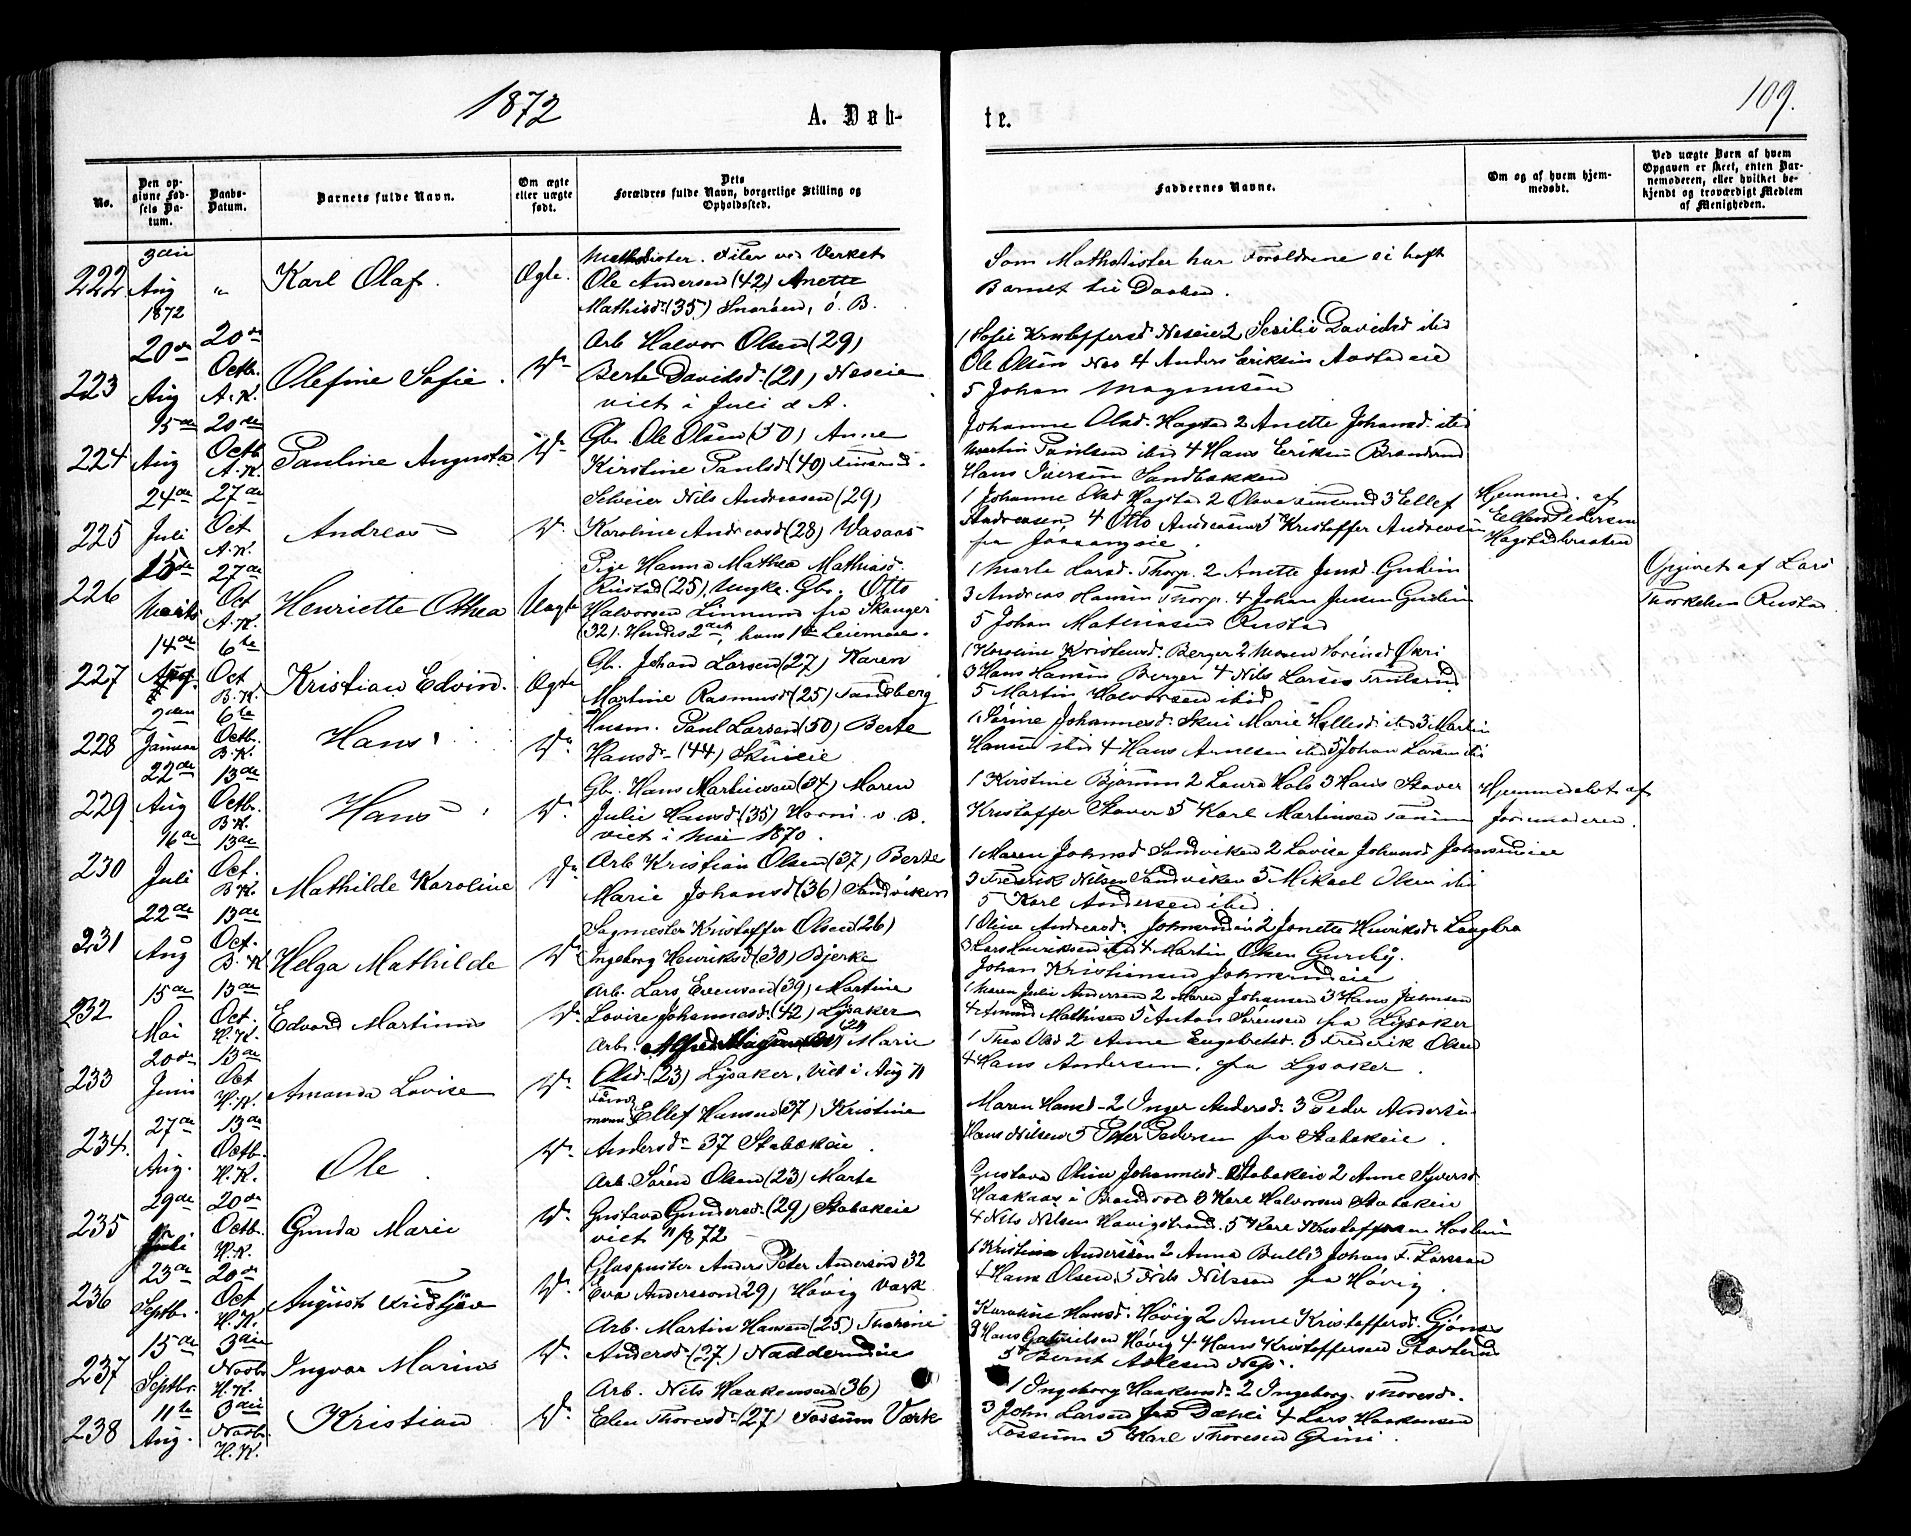 1872
A. Døb-
te.
109.
No.
Den op-
givne Fød-
sels Da-
tum.
Daabs-
Datum.
Barnets fulde Navn.
Om ægte
eller uægte
født.
Dets
Forældres fulde Navn, borgerlige Stilling og
Opholdssted.
Faddernes Navne.
Om og af hvem hjem-
medøbt.
Ved uægte Børn af hvem
Opgaven er skeet, enten Bar-
nemoderen, eller hvilket be-
kjendt og troværdigt Medlem
af Menigheden.
222
3die
Aug
1872
"
Karl Olaf.
Ægte.
Methodister. Filer ved Verket
Ole Andersen (42) Anette
Mathisd. (35) Snarøen, ø. B.
Som Methodister har Forældrene ei havt
Barnet til Daaben.
223
20de
Aug
20de
Octb.
A. K.
Olefine Sofie.
Do
Arb Halvor Olsen (29)
Berte Davidsd. (21) Neseie
viet i Juli d A.
1 Sofie Kristoffersd Neseie 2 Serilie Davidsd ibid
Ole Olsen Nes 4 Anders Eriksen
5 Johan Magnusen
224
15de
Aug
20de
Octb
A. K.
Pauline Augusta
Do
Gbr. Ole Olsen (50) Anne
Kirstine Paulsd (40)
Johanne Olsd. Hagstad 2 Anette Johansd. ibid
Martin Paulsen ibid 4 Hans Eriksen
Hans Iversen Sandbakken
225
24de
Juli
27de
Oct
A. K.
Andreas
Do
Selveier Nils Andreasen (29)
Karoline Andreasd (28) Vasaas
1 Johanne Olsd Hagstad 2 Olava 3 Ellef
Andreasen 4 Otto Andreasen 5 Kristoffer Andreasen
fra
Hjemmed. af
Ellen Pedersen
Hagstadbraaten
226
15de
Marts
27de
Oct
A. K.
Henriette Othea
Uægte
Pige Hanna Mathea Mathiasd.
Rustad (25), Ungk. Gbr. Otto
Halvorsen fra
(32). Hendes 2det, hans 1ste Leiermaal.
1 Marte Larsd. Thorp. 2 Anette Jensd
3 Andreas Hansen Thorp. 4 Johan Jensen
5 Johan Mathiasen Rustad
Opgivet af Lars
Thorkelsen Rustad
227
14de
Aug.
6te
Oct
B. K.
Kristian Edvin.
Ægte
Gb. Johan Larsen (27) Karen
Martine Rasmusd (25) Tandberg
1 Karoline Kristensd. Berger 2 Maren Sørensd Økri
3 Hans Hansen Berger 4 Nils Larsen
5 Martin Halvorsen ibid
228
2den
Januar
6te
Octb.
B. K.
Hans
Do
Husm. Paul Larsen (50) Berte
Hansd. (44) Skuieie
1 Sørine Johannesd. Skui Marie Hellesd. ibid 3 Martin
Hansen ibid 4 Hans Arnesen ibid 5 Johan Larsen ibid
229
22de
Aug
13de
Octb.
B. K.
Hans
Do
Gb. Hans Martinsen (34) Maren
Julie Hansd. (35) Horni v. B.
viet i Mai 1870.
1 Kristine Bjørum 2 Laura Hols 3 Hans Staver
Kristoffer Staver 5 Karl Martinsen
Hjemmedøbt af
Jordmoderen.
230
16de
Juli
13de
Oct.
B. K.
Mathilde Karoline
Do
Arb Kristian Olsen (37) Berte
Marie Johansd (36) Sandviken
1 Maren Johnsd Sandviken 2 Lovise Johansd
3 Fredrik Nilsen Sandviken 5 Mikael Olsen ibid
5 Karl Andersen ibid
231
22de
Aug
13de
Oct.
B. K
Helga Mathilde
Do
Sagmester Kristoffer Olsen (26)
Ingeborg Henriksd (30) Bjerke
1 Oline Andreasd. 2 Janette Henriksd
3 Lars Henriksen ibid 4 Martin Olsen
Johan Kristiansen
232
15de
Mai
13de
Oct.
H. K.
Edvard Martinus
Do
Arb. Lars Evensen (39) Martine
Lovise Johannesd. (42) Lysaker
1 Maren Julie Andersen 2 Maren Johansen 3 Hans Jakobsen
4 Amund Mathisen 5 Anton Sørensen fra Lysaker
233
20de
Juni
13de
Oct
H. K.
Amanda Lovise
Do
Arb. Marie
Olsd. (23) Lysaker. Viet i Aug 71
1 Thea Olsd 2 Anne Engebretsd. 3 Frederik Olsen
4 Hans Andersen, fra Lysaker.
234.
27de
Aug.
13de
Octb.
H. K.
Ole
Do
Ellef Hansen (37) Kristine
Andersd. 37 Stabækeie.
Maren Hansd. 2 Inger Andersd. 3 Peder Andersen
Hans Nilsen 5 Peter Pedersen fra Stabækeie.
235
29de
Juli
20de
Octb.
H. K.
Gunda Marie
Do
Arb. Søren Olsen (23) Marte
Gustava Gundersd. (29) Stabækeie
viet 1872
Gustava Oline Johannesd. Stabækeie 2 Anne Syversd
3 Karl Halvorsen Stabækeie
4 Nils Nilsen Høvigstrand. 5 Karl Kristoffersen
236
23de
Septbr.
20de
Oct
H. K.
August Fridtjav
Do
Glaspuster Anders Peter Anderson 32
Eva Andersson 29, Høvig Værk
1 Kristina Andersson 2 Anna Bull 3 Johan F. Larsson
4 Hans Olsen, 5 Nils Nilsson fra Høvig.
237
15de
Septbr.
3die
Novbr
H. K.
Ingvar Marius
Do
Arb. Martin Hansen (25)
Andersd. (27.) Nadderudeie
Karoline Hansd. Høvig 2 Anne Kristoffersd. Gjønnes
3 Hans Gabrielsen Høvig 4. Hans Kristoffersen
5 Bernt
238
11te
Aug.
3die
Novbr
H. K.
Kristian
Do
Arb. Nils Haakensen (36)
Elen Thoresd. (27) Fossum Værk
1 Ingeborg Haakensd. 2 Ingeborg Thoresd.
3 John Larsen fra Dæhli 4 Lars Haakensen
Fossum 5 Karl Thoresen Grini.